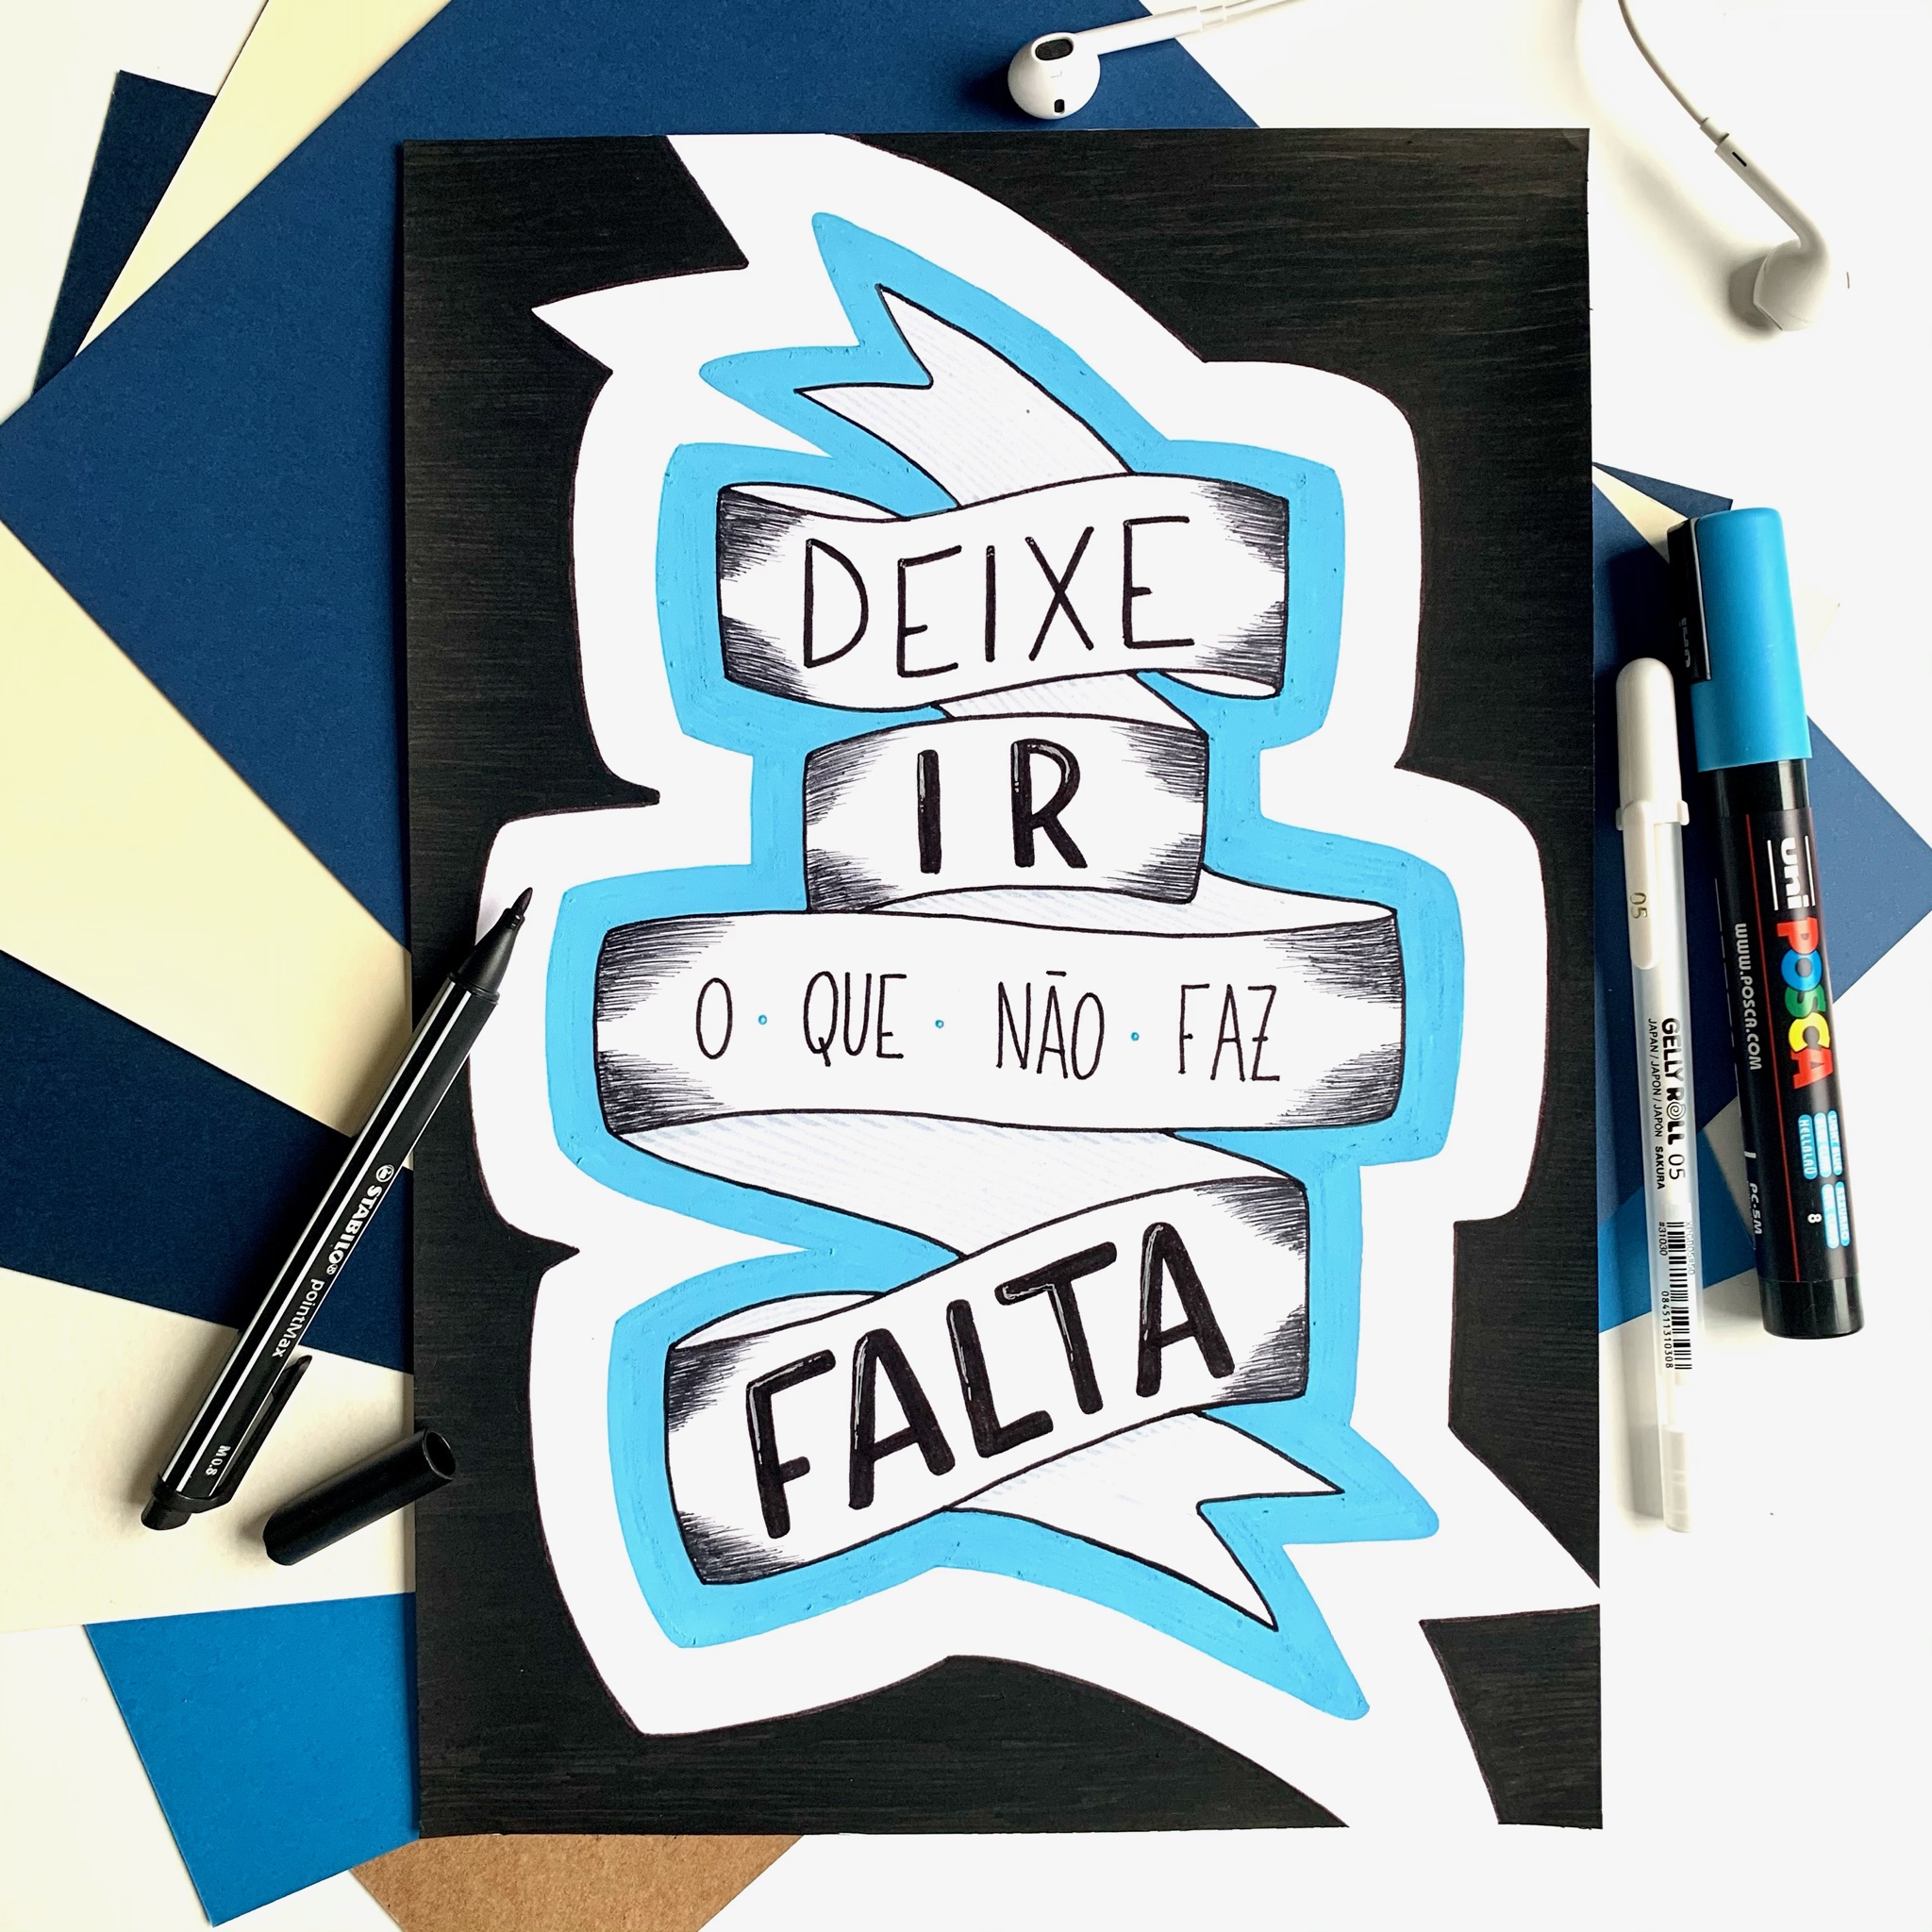 DEIXE
IR
O · QUE · NÃO · FAZ
FALTA
STABILO® pointMax
M 0.8
05
GELLY ROLL 05
JAPAN / JAPON / JAPÓN SAKURA
#31030
084511310308
uni POSCA
www.POSCA.COM
PC-5M
8